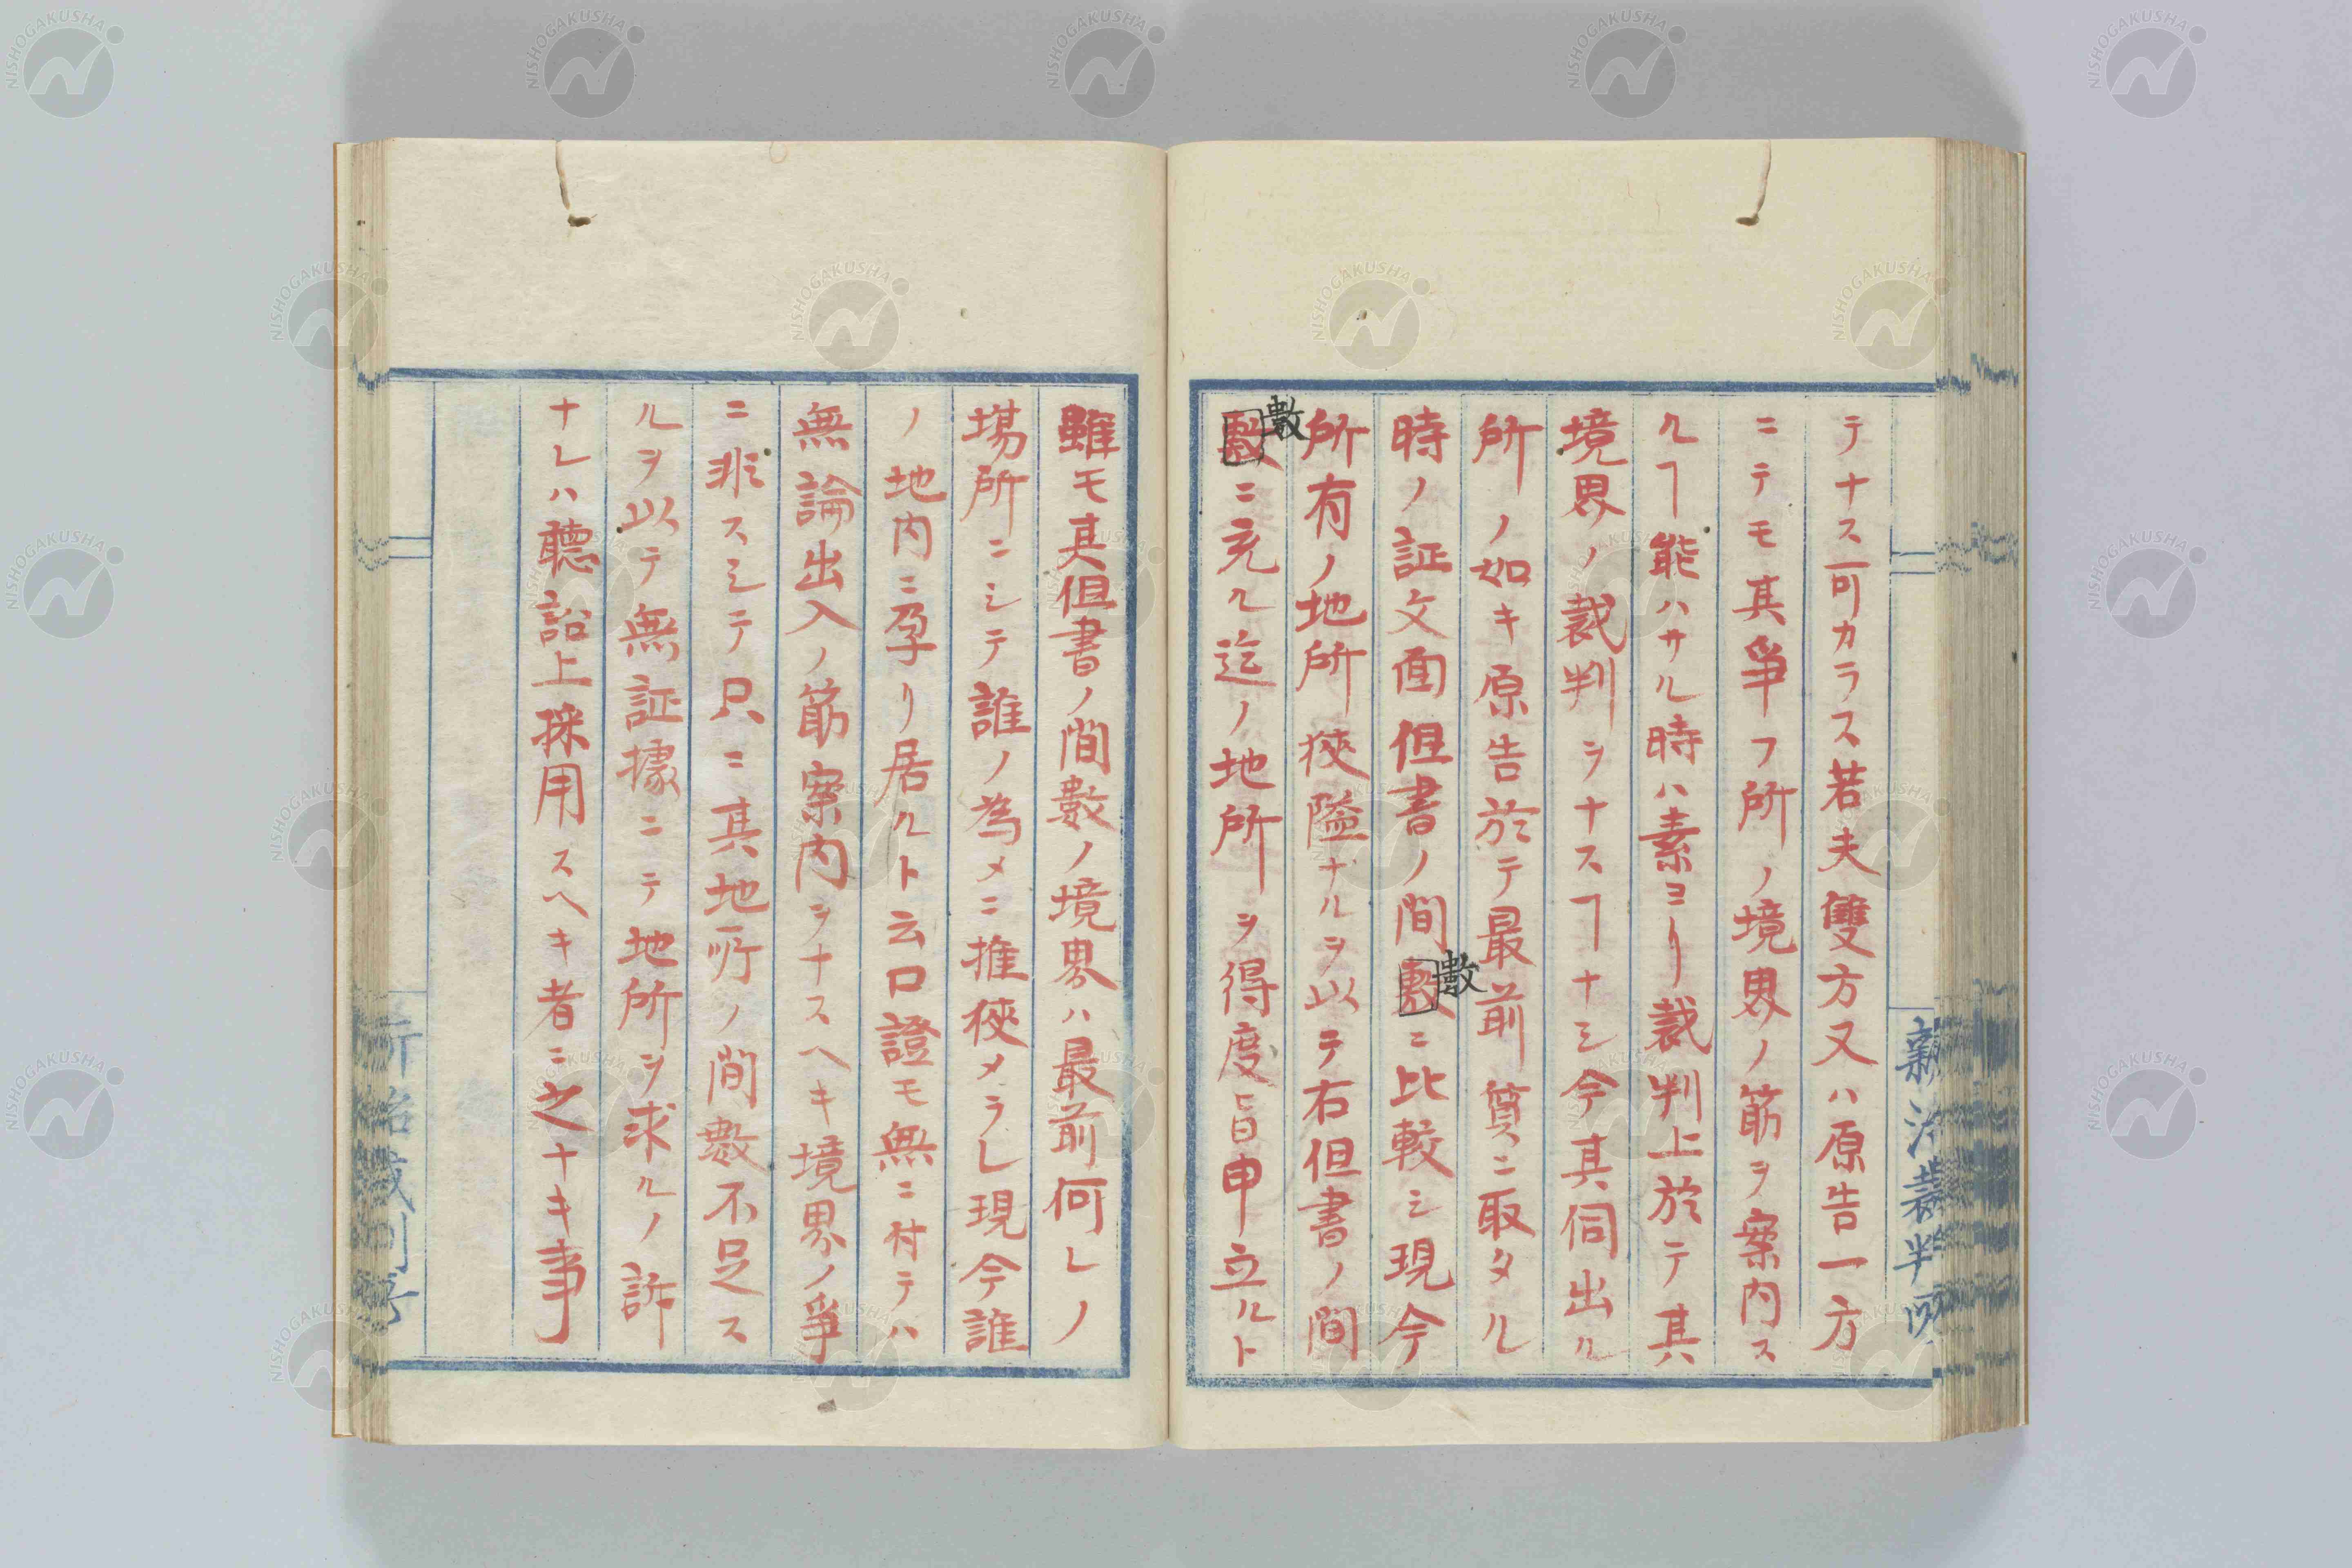 テナス可カラス若夫雙方又ハ原告一方
ニテモ其爭フ所ノ境界ノ筋ヲ案内ス
ルヿ能ハサル時ハ素ヨリ裁判上於テ其
境界ノ裁判ヲナスヿナシ今其伺出ル
所ノ如キ原告於テ最前質ニ取タル
時ノ証文面但書ノ間數ニ比較シ現今
數
所有ノ地所狹隘ナルヲ以テ右但書ノ間
數ニ充ル迄ノ地所ヲ得度旨申立ルト
數
雖モ其但書ノ間數ノ境界ハ最前何レノ
場所ニシテ誰ノ為メニ推狹メラレ現今誰
ノ地内ニ孕リ居ルト云口證モ無ニ付テハ
無論出入ノ筋案内ヲナスヘキ境界ノ爭
ニ非スシテ只ニ其地所ノ間數不足ス
ルヲ以テ無証據ニテ地所ヲ求ルノ訴
ナレハ聽訟上採用スヘキ者ニ之ナキ事
新治裁判所
NISHOGAKUSHA